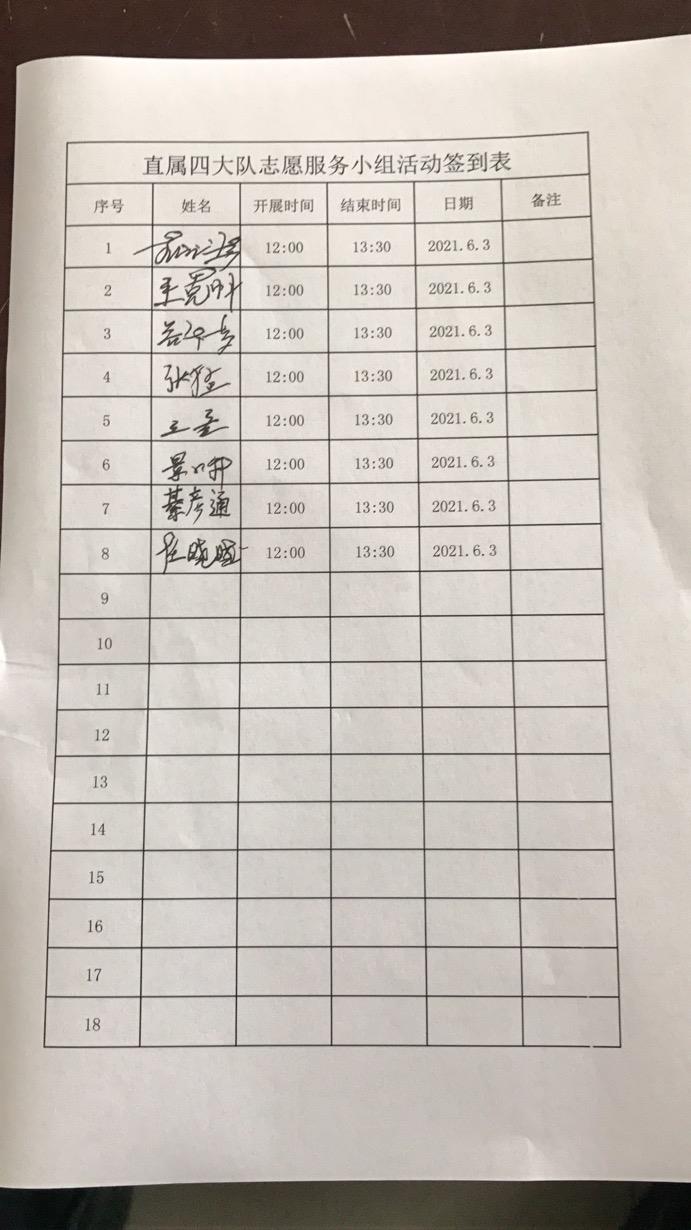 直属四大队志愿服务小组活动签到表
序号 姓名 开展时间 结束时间 日期 备注
1 12:00 13:30 2021.6.3
2 12:00 13:30 2021.6.3
3 12:00 13:30 2021.6.3
4 12:00 13:30 2021.6.3
5 12:00 13:30 2021.6.3
6 12:00 13:30 2021.6.3
7 綦彦通 12:00 13:30 2021.6.3
8 12:00 13:30 2021.6.3
9
10
11
12
13
14
15
16
17
18